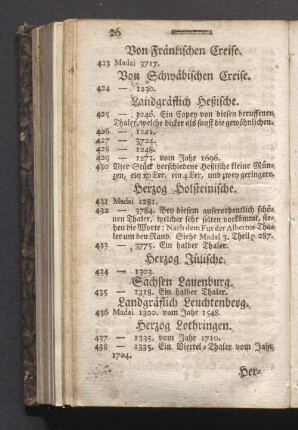 26
Von Fränkischen Creise.
423 Madai 3717.
Von Schwäbischen Creise.
424 — 1230.
Landgräflich Heßische.
425 — 3046. Ein Copey von diesen beruffenen
Thaler, welche dicker als sonst die gewöhnlichen.
426 — 1241.
427 — 3724.
428 — 1248.
429 — 1273. vom Jahr 1696.
430 Vier Stück verschiedene Heßische kleine Mün-
zen, ein er, ein 4 er, und zwey geringere.
Herzog Holsteinische.
431 Madai 1281.
432 — 3784. Bey diesem auserordentlich schö-
nen Thaler, welcher sehr selten vorkommt, ste-
hen die Worte: Nach dem Fus der Albertus Tha-
ler um den Rand. Siehe Madai 3. Theil p. 287.
433 — 3775. Ein halber Thaler.
Herzog Jülische.
434 — 1303.
Sachsen Lauenburg.
435 — 1318. Ein halber Thaler.
Landgräflich Leuchtenberg.
436 Madai 1320. vom Jahr 1548.
Herzog Lothringen.
437 — 1335. vom Jahr 1710.
438 — 1335. Ein Viertel-Thaler vom Jahr
1704.
Her-